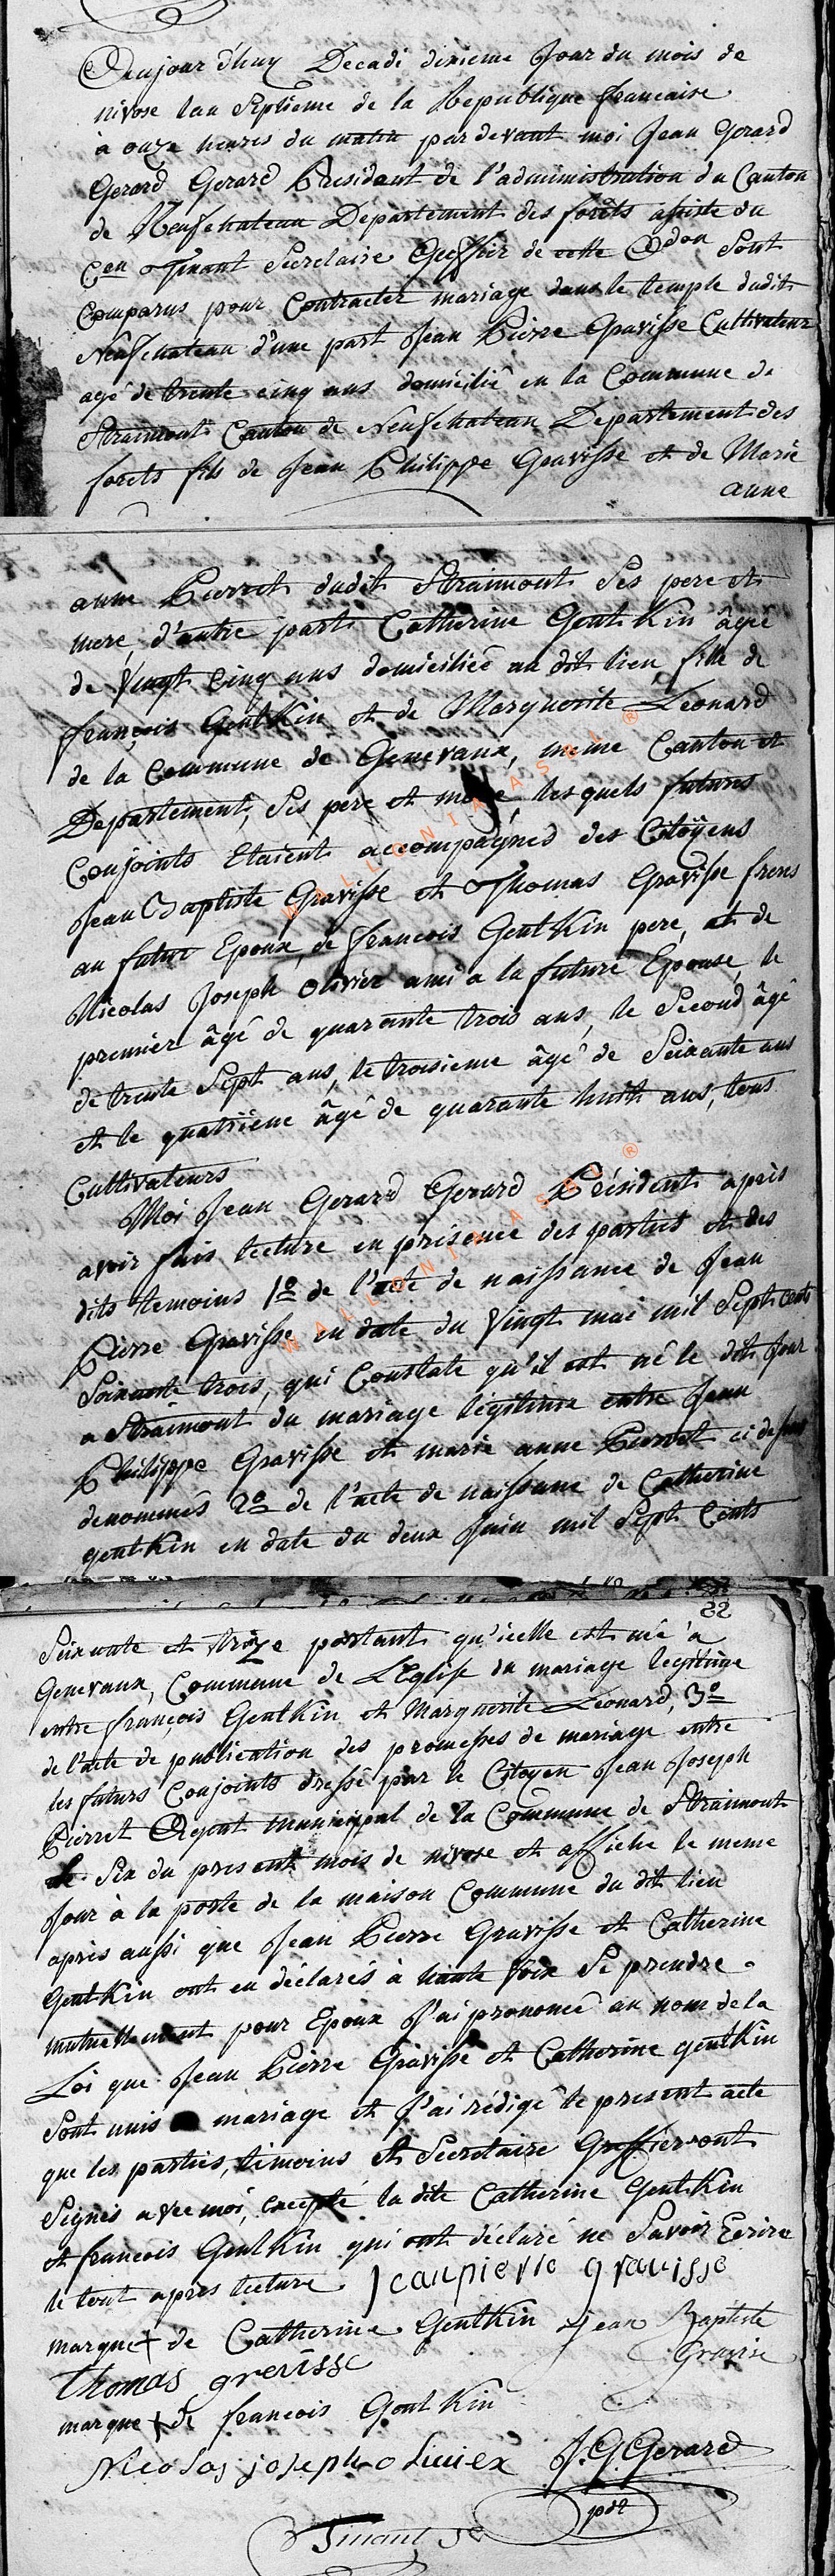 Aujour d'huy Decadi dixieme Jour du mois de
nivose l'an Septieme de la Republique francaise
a onze heures du matin pardevant moi Jean Gerard
Gerard Gerard President de l'administration du Canton
de Neufchateau Departement des forêts assisté du
Cen Tinant Secretaire Greffier de cette Adon Sont
Comparus pour Contracter mariage dans le temple dudit
Neufchateau d'une part Jean Pierre Gravisse Cultivateur
agé de trente cinq ans domicilié en la Commune de
Straimont Canton de Neufchateau Departement des
forets fils de Jean Philippe Gravisse et de Marie
anne
anne Pierret dudit Straimont Ses pere et
mere, d'autre part Catherine GoutKin âgée
de Vingt Cinq ans domiciliée au dit lieu, fille de
françois GoutKin et de Marguerite Leonard
de la Commune de Genevaux, meme Canton et
Departement, Ses pere et mere, lesquels futurs
Conjoints Etaient accompagnés des Citoÿens
Jean Baptiste Gravisse et Thomas Gravisse freres
au futur Epoux, de françois GoutKin pere, et de
Nicolas Joseph Olivier ami a la future Epouse, le
premier âgé de quarante trois ans, le Second âgé
de trente Sept ans, le troisieme âgé de Seixante ans
et le quatrieme âgé de quarante huit ans, tous
Cultivateurs
Moi Jean Gerard Gerard Président après
avoir fais lecture en presence des parties et des
dits temoins 1o de l'acte de naissance de Jean
Pierre Gravisse en date du Vingt mai mil Sept Cents
Soixante trois, qui Constate qu'il est né le dit Jour
a Straimont du mariage légitime entre Jean
Philippe Gravisse et marie anne Pierret ci dessus
denommés 2o de l'acte de naissance de Catherine
goutKin en date du deux Juin mil Sept Cents
WALLONIA ASBL ®
WALLONIA ASBL ®
22
Seixante et treize portant qu'icelle est née a
Genevaux, Commune de L'Eglise du mariage legitime
entre françois GoutKin et Marguerite Leonard, 3o
de l'acte de publication des promesses de mariage entre
les futurs Conjoints dressé par le Citoyen Jean Joseph
Pierret Agent municipal de la Commune de Straimont
le Six du present mois de nivose et affiche le meme
Jour à la porte de la maison Commune du dit lieu
après aussi que Jean Pierre Gravisse et Catherine
GoutKin ont eu déclarés à haute Voix Se prendre
mutuellement pour Epoux J'ai prononcé au nom de la
Loi que Jean Pierre Gravisse et Catherine goutKin
Sont unis mariage et J'ai rédigé le present acte
que les parties, temoins et Secretaire Greffier ont
Signés avec moi, excepté la dite Catherine GoutKin
et francois GoutKin qui ont déclaré ne Savoir Ecrire
le tout apres lecture. Jeanpierre gravisse
marque + de Catherine GoutKin Jean Baptiste
Gravise
thomas gravisse
marque + de francois GoutKin
Nicolas joseph olivier J.G Gerard
pdt
Tinant Se